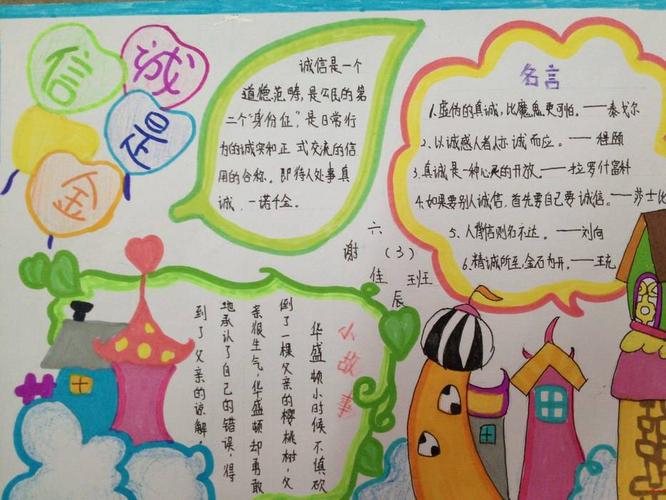 诚
信
是
金
诚信是一个
道德范畴,是公民的第
二个"身份证",是日常行
为的诚实和正式交流的信
用的合称。即待人处事真
诚、一诺千金。
名言
1.虚伪的真诚,比魔鬼更可怕。——泰戈尔
2.以诚感人者人亦诚而应。——程颐
3.真诚是一种心灵的开放。——拉罗什富科
4.如果要别人诚信,首先要自己要诚信。——莎士比
5.人背信则名不达。——刘向
6.精诚所至,金石为开。——王充
六(3)班
谢佳辰
小故事
华盛顿小时候不慎砍
倒了一棵父亲的樱桃树,父
亲很生气,华盛顿却勇敢
地承认了自己的错误,得
到了父亲的谅解。